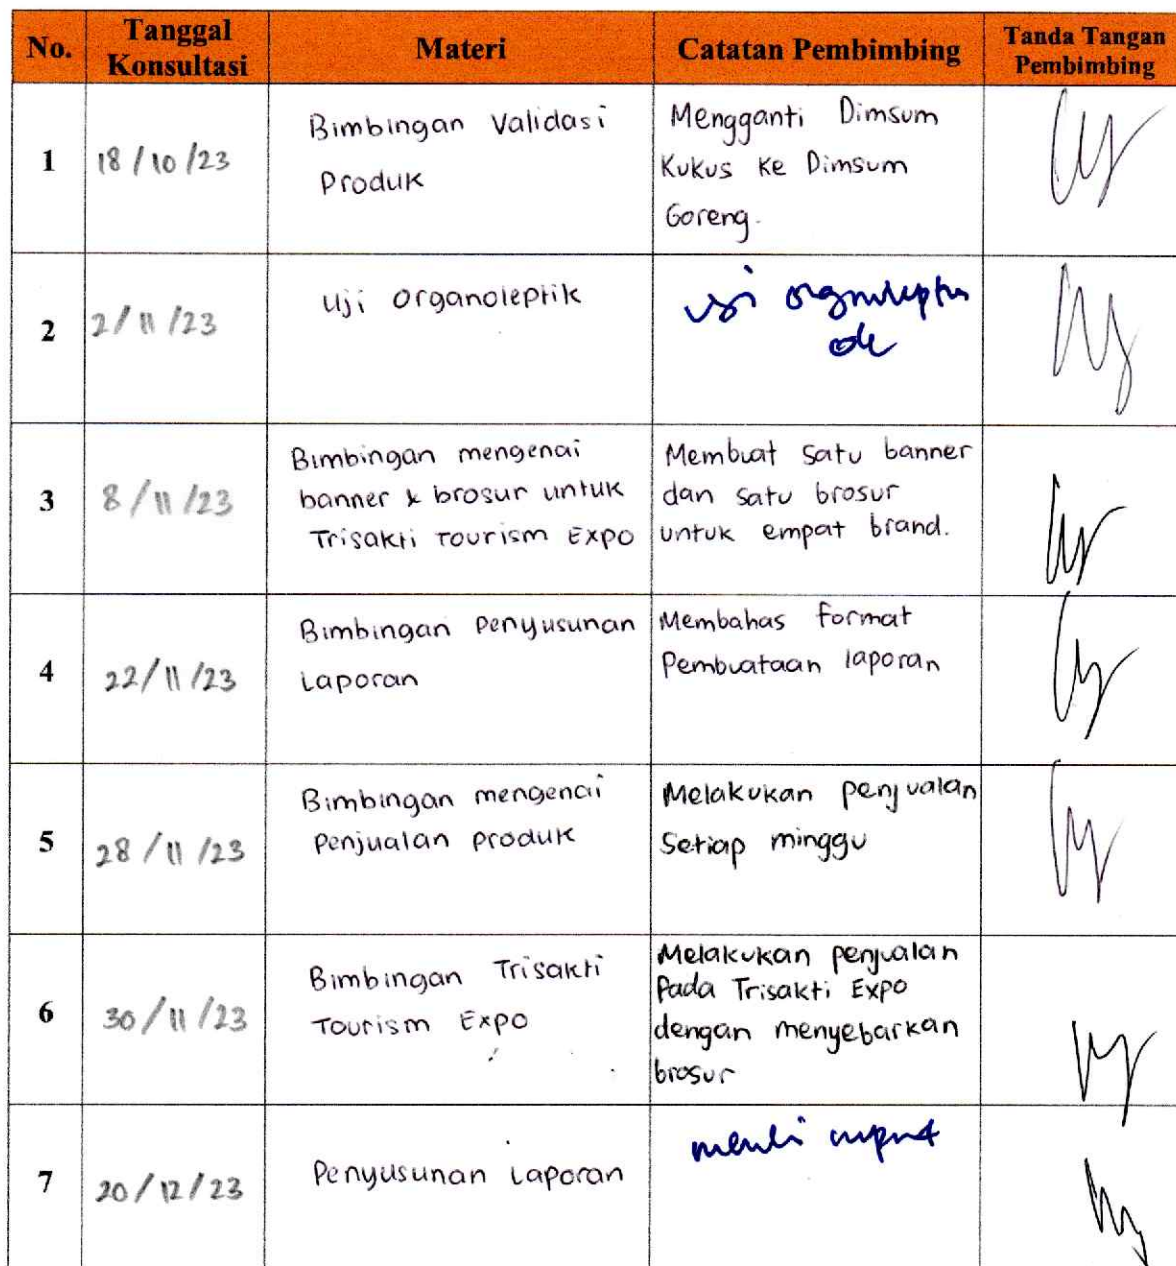 No.
Tanggal
Konsultasi
Materi
Catatan Pembimbing
Tanda Tangan
Pembimbing
1
18/10/23
Bimbingan Validasi
Produk
Mengganti Dimsum
Kukus ke Dimsum
Goreng.
2
2/11/23
Uji Organoleptik
uji
3
8/11/23
Bimbingan mengenai
banner & brosur untuk
Trisakti Tourism Expo
Membuat satu banner
dan satu brosur
untuk empat brand.
4
22/11/23
Bimbingan Penyusunan
Laporan
Membahas format
Pembuataan laporan
5
28/11/23
Bimbingan mengenai
Penjualan produk
Melakukan penjualan
Setiap minggu
6
30/11/23
Bimbingan Trisakti
Tourism Expo
Melakukan penjualan
Pada Trisakti Expo
dengan menyebarkan
brosur
7
20/12/23
Penyusunan Laporan